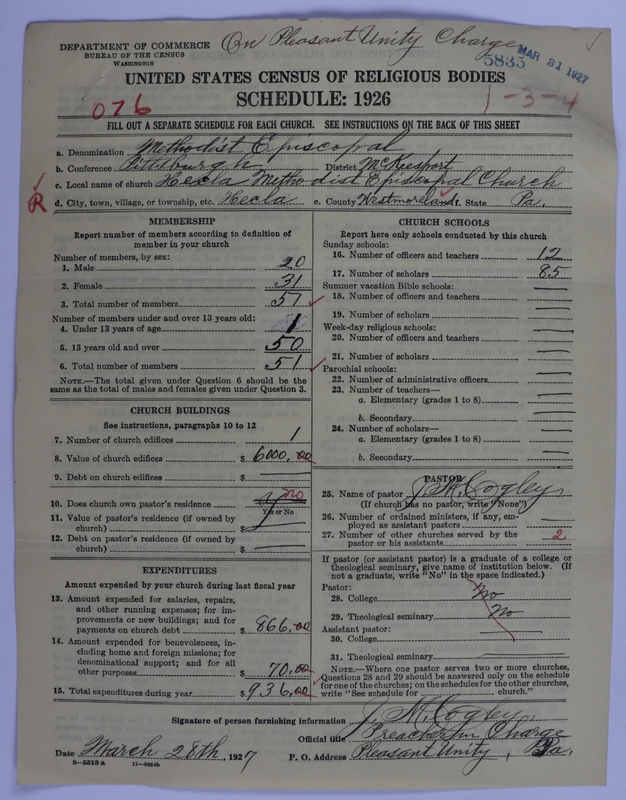 On Pleasant Unity Charge
DEPARTMENT OF COMMERCE
BUREAU OF THE CENSUS
WASHINGTON
5835
MAR 31 1927
UNITED STATES CENSUS OF RELIGIOUS BODIES
SCHEDULE: 1926
076
1-3-4
FILL OUT A SEPARATE SCHEDULE FOR EACH CHURCH. SEE INSTRUCTIONS ON THE BACK OF THIS SHEET
a. Denomination Methodist Episcopal
b. Conference Pittsburgh District McKeesport
c. Local name of church Hecla Methodist Episcopal Church
R d. City, town, village, or township, etc. Hecla e. County Westmoreland f. State Pa.
MEMBERSHIP
Report number of members according to definition of
member in your church
Number of members, by sex:
1. Male 20
2. Female 31
3. Total number of members 51
Number of members under and over 13 years old:
4. Under 13 years of age 1
5. 13 years old and over 50
6. Total number of members 51
NOTE.—The total given under Question 6 should be the
same as the total of males and females given under Question 3.
CHURCH BUILDINGS
See instructions, paragraphs 10 to 12
7. Number of church edifices 1
8. Value of church edifices $ 6000.00
9. Debt on church edifices $
10. Does church own pastor's residence no
Yes or No
11. Value of pastor's residence (if owned by
church) $
12. Debt on pastor's residence (if owned by
church) $
EXPENDITURES
Amount expended by your church during last fiscal year
13. Amount expended for salaries, repairs,
and other running expenses; for im-
provements or new buildings; and for
payments on church debt $ 866.00
14. Amount expended for benevolences, in-
cluding home and foreign missions; for
denominational support; and for all
other purposes 70.00
15. Total expenditures during year $ 936.00
CHURCH SCHOOLS
Report here only schools conducted by this church
Sunday schools:
16. Number of officers and teachers 12
17. Number of scholars 85
Summer vacation Bible schools:
18. Number of officers and teachers
19. Number of scholars
Week-day religious schools:
20. Number of officers and teachers
21. Number of scholars
Parochial schools:
22. Number of administrative officers
23. Number of teachers—
a. Elementary (grades 1 to 8)
b. Secondary
24. Number of scholars—
a. Elementary (grades 1 to 8)
b. Secondary
PASTOR
25. Name of pastor J. M. Cogley
(If church has no pastor, write "None")
26. Number of ordained ministers, if any, em-
ployed as assistant pastors
27. Number of other churches served by the
pastor or his assistants 2
If pastor (or assistant pastor) is a graduate of a college or
theological seminary, give name of institution below. (If
not a graduate, write "No" in the space indicated.)
Pastor:
28. College No
29. Theological seminary No
Assistant pastor:
30. College
31. Theological seminary
NOTE.—Where one pastor serves two or more churches,
Questions 28 and 29 should be answered only on the schedule
for one of the churches; on the schedules for the other churches,
write "See schedule for church."
Signature of person furnishing information J. M. Cogley
Official title Preacher in Charge
Date March 28th, 1927 P. O. Address Pleasant Unity, Pa.
8—5518 a